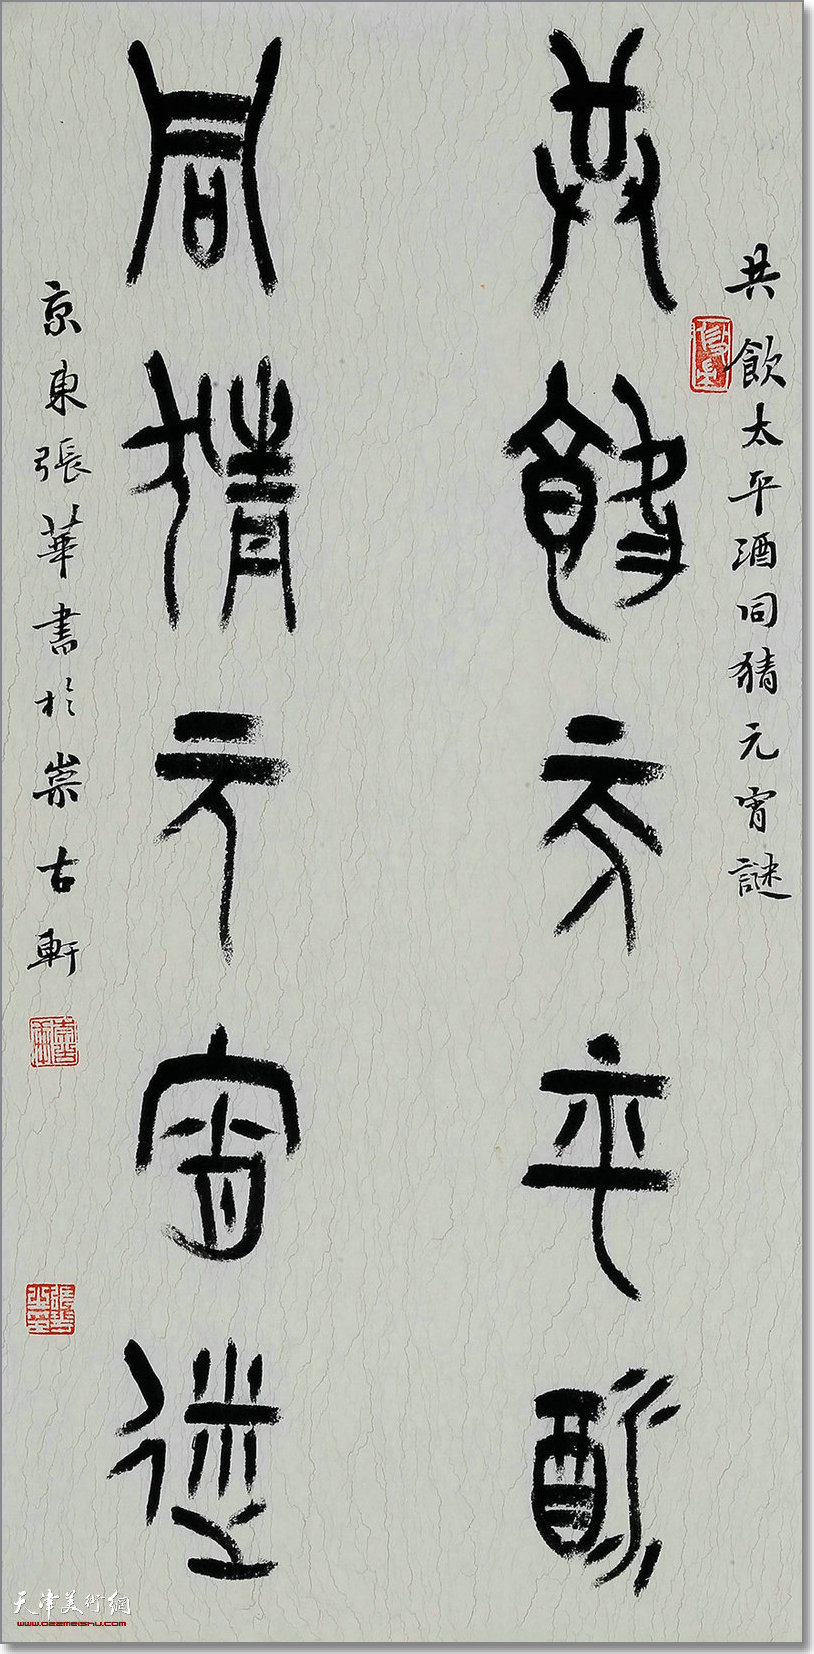 共飲太平酒
同猜元宵謎
共飲太平酒同猜元宵謎
京東張華書於崇古軒
天津美術網
www.022meishu.com